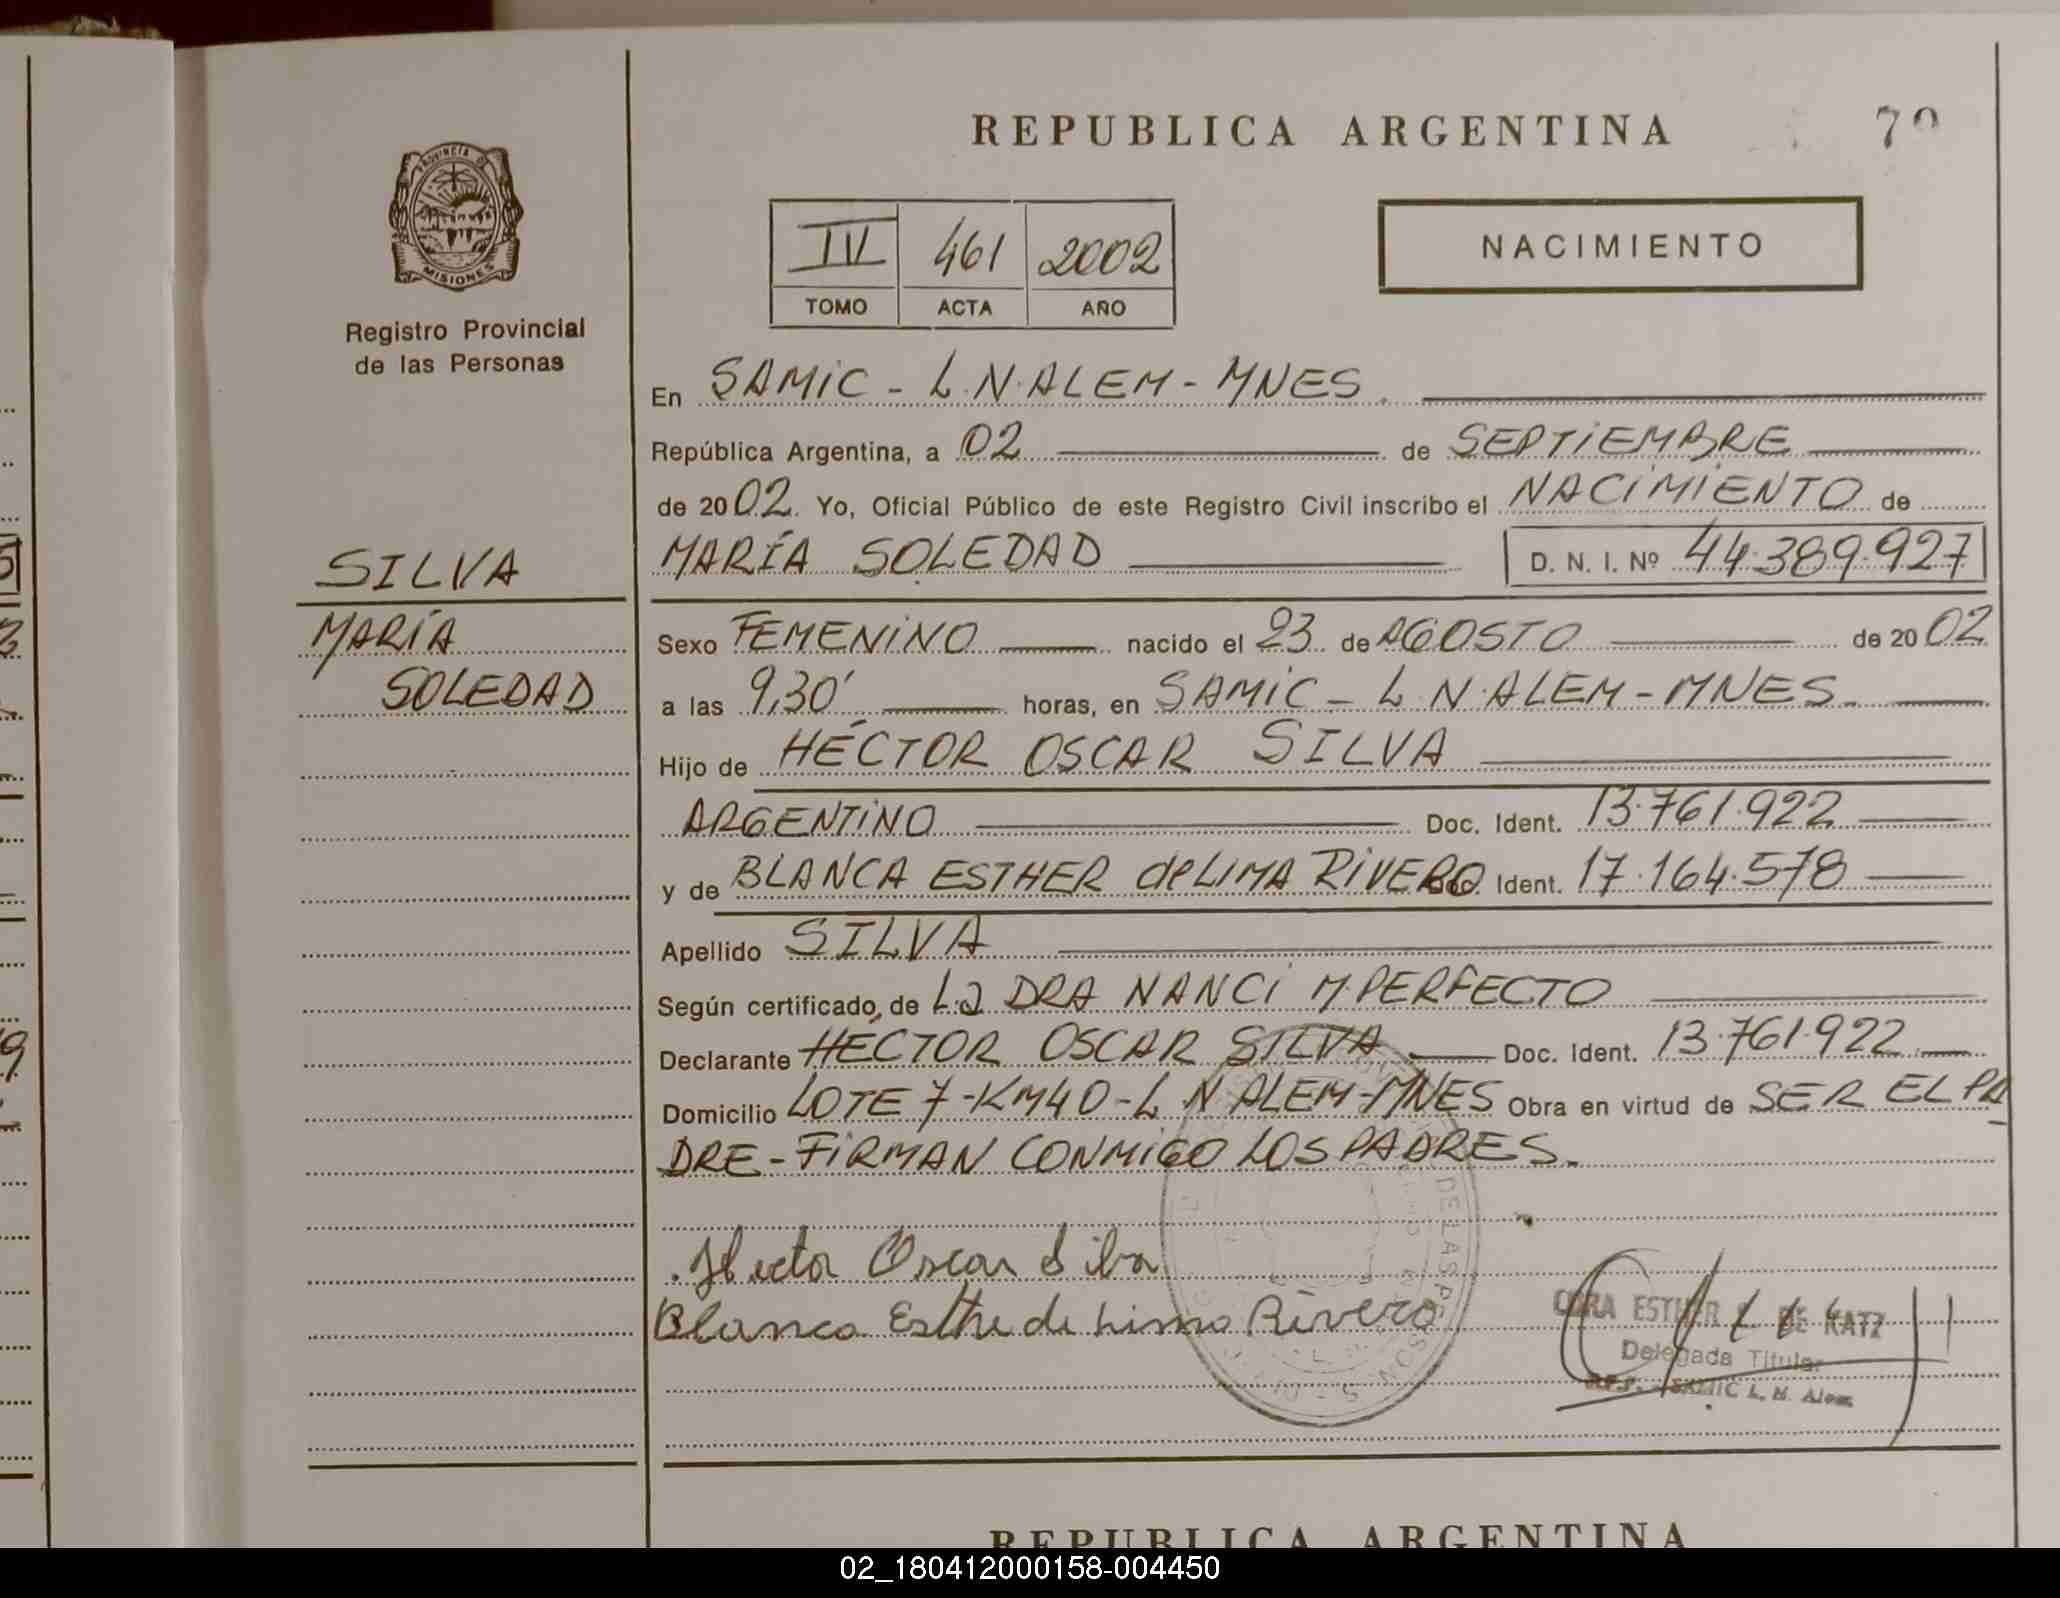 REPUBLICA ARGENTINA
PROVINCIA DE
MISIONES
Registro Provincial
de las Personas
IV 461 2002
TOMO ACTA AÑO
NACIMIENTO
En SAMIC - L.N. ALEM - MNES.
República Argentina, a 02 de SEPTIEMBRE
de 2002. Yo, Oficial Público de este Registro Civil inscribo el NACIMIENTO de
SILVA
MARÍA SOLEDAD D. N. I. Nº 44.389.927
MARÍA
SOLEDAD
Sexo FEMENINO nacido el 23 de AGOSTO de 2002
a las 9,30' horas, en SAMIC - L N. ALEM - MNES.
Hijo de HÉCTOR OSCAR SILVA
ARGENTINO Doc. Ident. 13.761.922
y de BLANCA ESTHER de LIMA RIVERO Doc. Ident. 17.164.578
Apellido SILVA
Según certificado de La DRA NANCI M. PERFECTO
Declarante HÉCTOR OSCAR SILVA Doc. Ident. 13.761.922
Domicilio LOTE 7 - KM40 - L N ALEM - MNES Obra en virtud de SER EL PA
DRE - FIRMAN CONMIGO LOS PADRES.
Hector Oscar Silva
Blanca Esthe de Lima Rivero
ESTHER DE KATZ
Delegada Titular
SAMIC L. N. Alem
REPUBLICA ARGENTINA
02_180412000158-004450